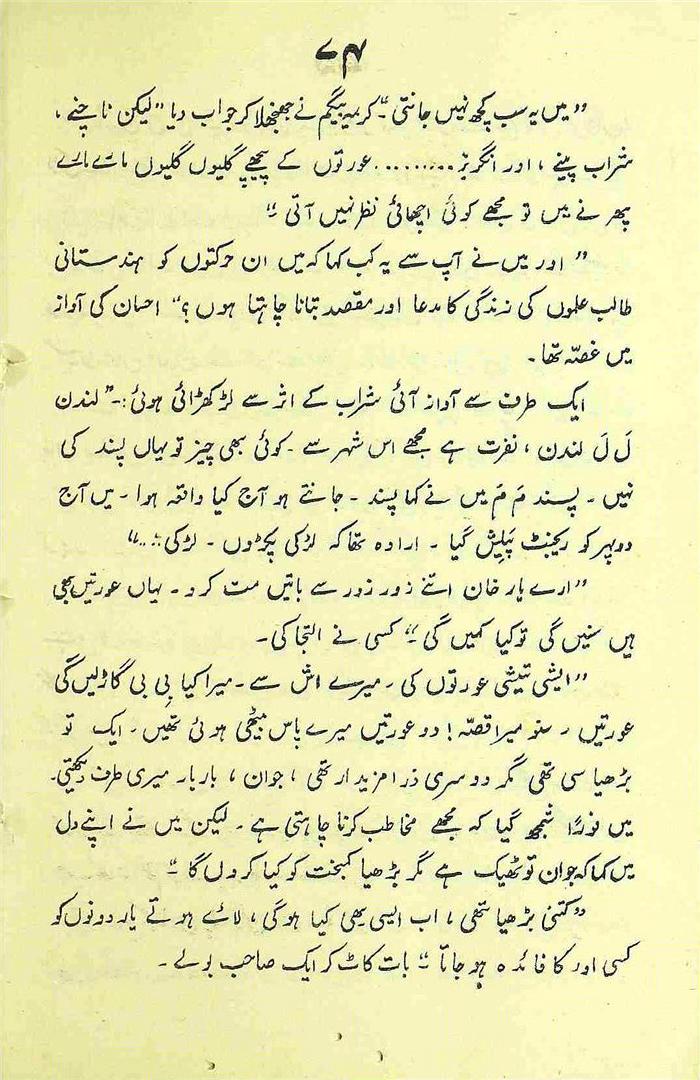 ۷۴
”میں یہ سب کچھ نہیں جانتی۔“ کریمہ بیگم نے جھنجھلا کر جواب دیا ”لیکن ناچنے ،
شراب پینے ، اور انگریز ......... عورتوں کے پیچھے گلیوں گلیوں مارے مارے
پھرنے میں تو مجھے کوئی اچھائی نظر نہیں آتی ۔“
”اور میں نے آپ سے یہ کب کہا کہ میں ان حرکتوں کو ہندستانی
طالب علموں کی زندگی کا مدعا اور مقصد بتانا چاہتا ہوں ؟“ احسان کی آواز
میں غصّہ تھا۔
ایک طرف سے آواز آئی شراب کے اثر سے لڑکھڑائی ہوئی :۔”لندن
لَ لَ لندن ، نفرت ہے مجھے اس شہر سے ۔ کوئی بھی چیز تو یہاں پسند کی
نہیں ۔ پسند مَ مَ میں نے کہا پسند ۔ جانتے ہو آج کیا واقعہ ہوا ۔ میں آج
دوپہر کو ریجنٹ پَلِیش گیا ۔ ارادہ تھا کہ لڑکی پکڑوں ۔ لڑکی ....“
”ارے یار خان اتنے زور زور سے باتیں مت کرو ۔ یہاں عورتیں بھی
ہیں سنیں گی تو کیا کہیں گی ۔“ کسی نے التجا کی۔
”ایشی تیشی عورتوں کی ۔ میرے اش سے ۔ میرا کیا بِی بی گاڑلیں گی
عورتیں ۔ سنو میرا قصّہ ! دو عورتیں میرے پاس بیٹھی ہوئی تھیں ۔ ایک تو
بڑھیا سی تھی مگر دوسری ذرا مزیدار تھی ، جوان ، بار بار میری طرف دیکھتی۔
میں فوراً شمجھ گیا کہ مجھے مخاطب کرنا چاہتی ہے ۔ لیکن میں نے اپنے دل
میں کہا کہ جوان تو ٹھیک ہے مگر بڑھیا کمبخت کو کیا کروں گا ۔“
”کتنی بڑھیا تھی ، اب ایسی بھی کیا ہوگی ، لائے ہوتے یار دونوں کو
کسی اور کا فائدہ ہو جاتا ۔“ بات کاٹ کر ایک صاحب بولے ۔